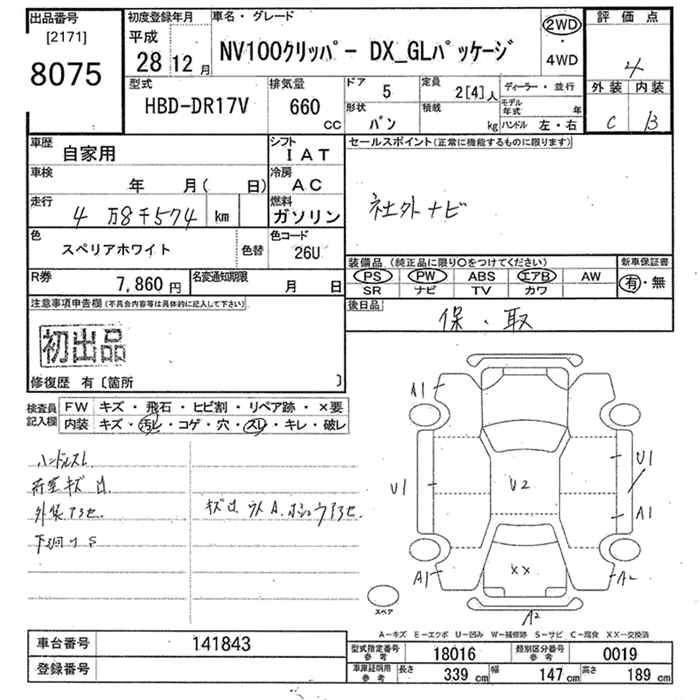 出品番号
[2171]
8075
初度登録年月
平成
28 12 月
車名・グレード
NV100クリッパー DX_GLパッケージ
2WD
・
4WD
評価点
4
外装 内装
C B
型式
HBD-DR17V
排気量
660
CC
ドア
5
定員
2[4]人
ディーラー・並行
形状
バン
積載
kg
モデル年式 年
ハンドル 左・右
車歴
自家用
シフト
IAT
車検
年 月( 日)
冷房
AC
走行
4万8千574 km
燃料
ガソリン
色
スペリアホワイト
色替
色コード
26U
R券
7,860 円
名変通知期限
月 日
セールスポイント(正常に機能するものに限ります)
社外ナビ
装備品 (純正品に限り○をつけてください)
PS PW ABS エアB AW
SR ナビ TV カワ
新車保証書
有・無
後日品
保・取
注意事項申告欄(不具合内容等は具体的に記入して下さい)
初出品
修復歴 有〔箇所 〕
検査員記入欄
FW キズ・飛石・ヒビ割・リペア跡・×要
内装 キズ・汚レ・コゲ・穴・スレ・キレ・破レ
ハンドルスレ
荷室キズ凹
外装アラセ
下回りS
A1
U1
U2
U1
A1
A1
XX
A2
A2
スペア
A−キズ E−エクボ U−凹み W−補修跡 S−サビ C−腐食 XX−交換済
車台番号
141843
登録番号
型式指定番号
参考
18016
類別区分番号
参考
0019
車庫証明用
参考
長さ 339 cm 幅 147 cm 高さ 189 cm